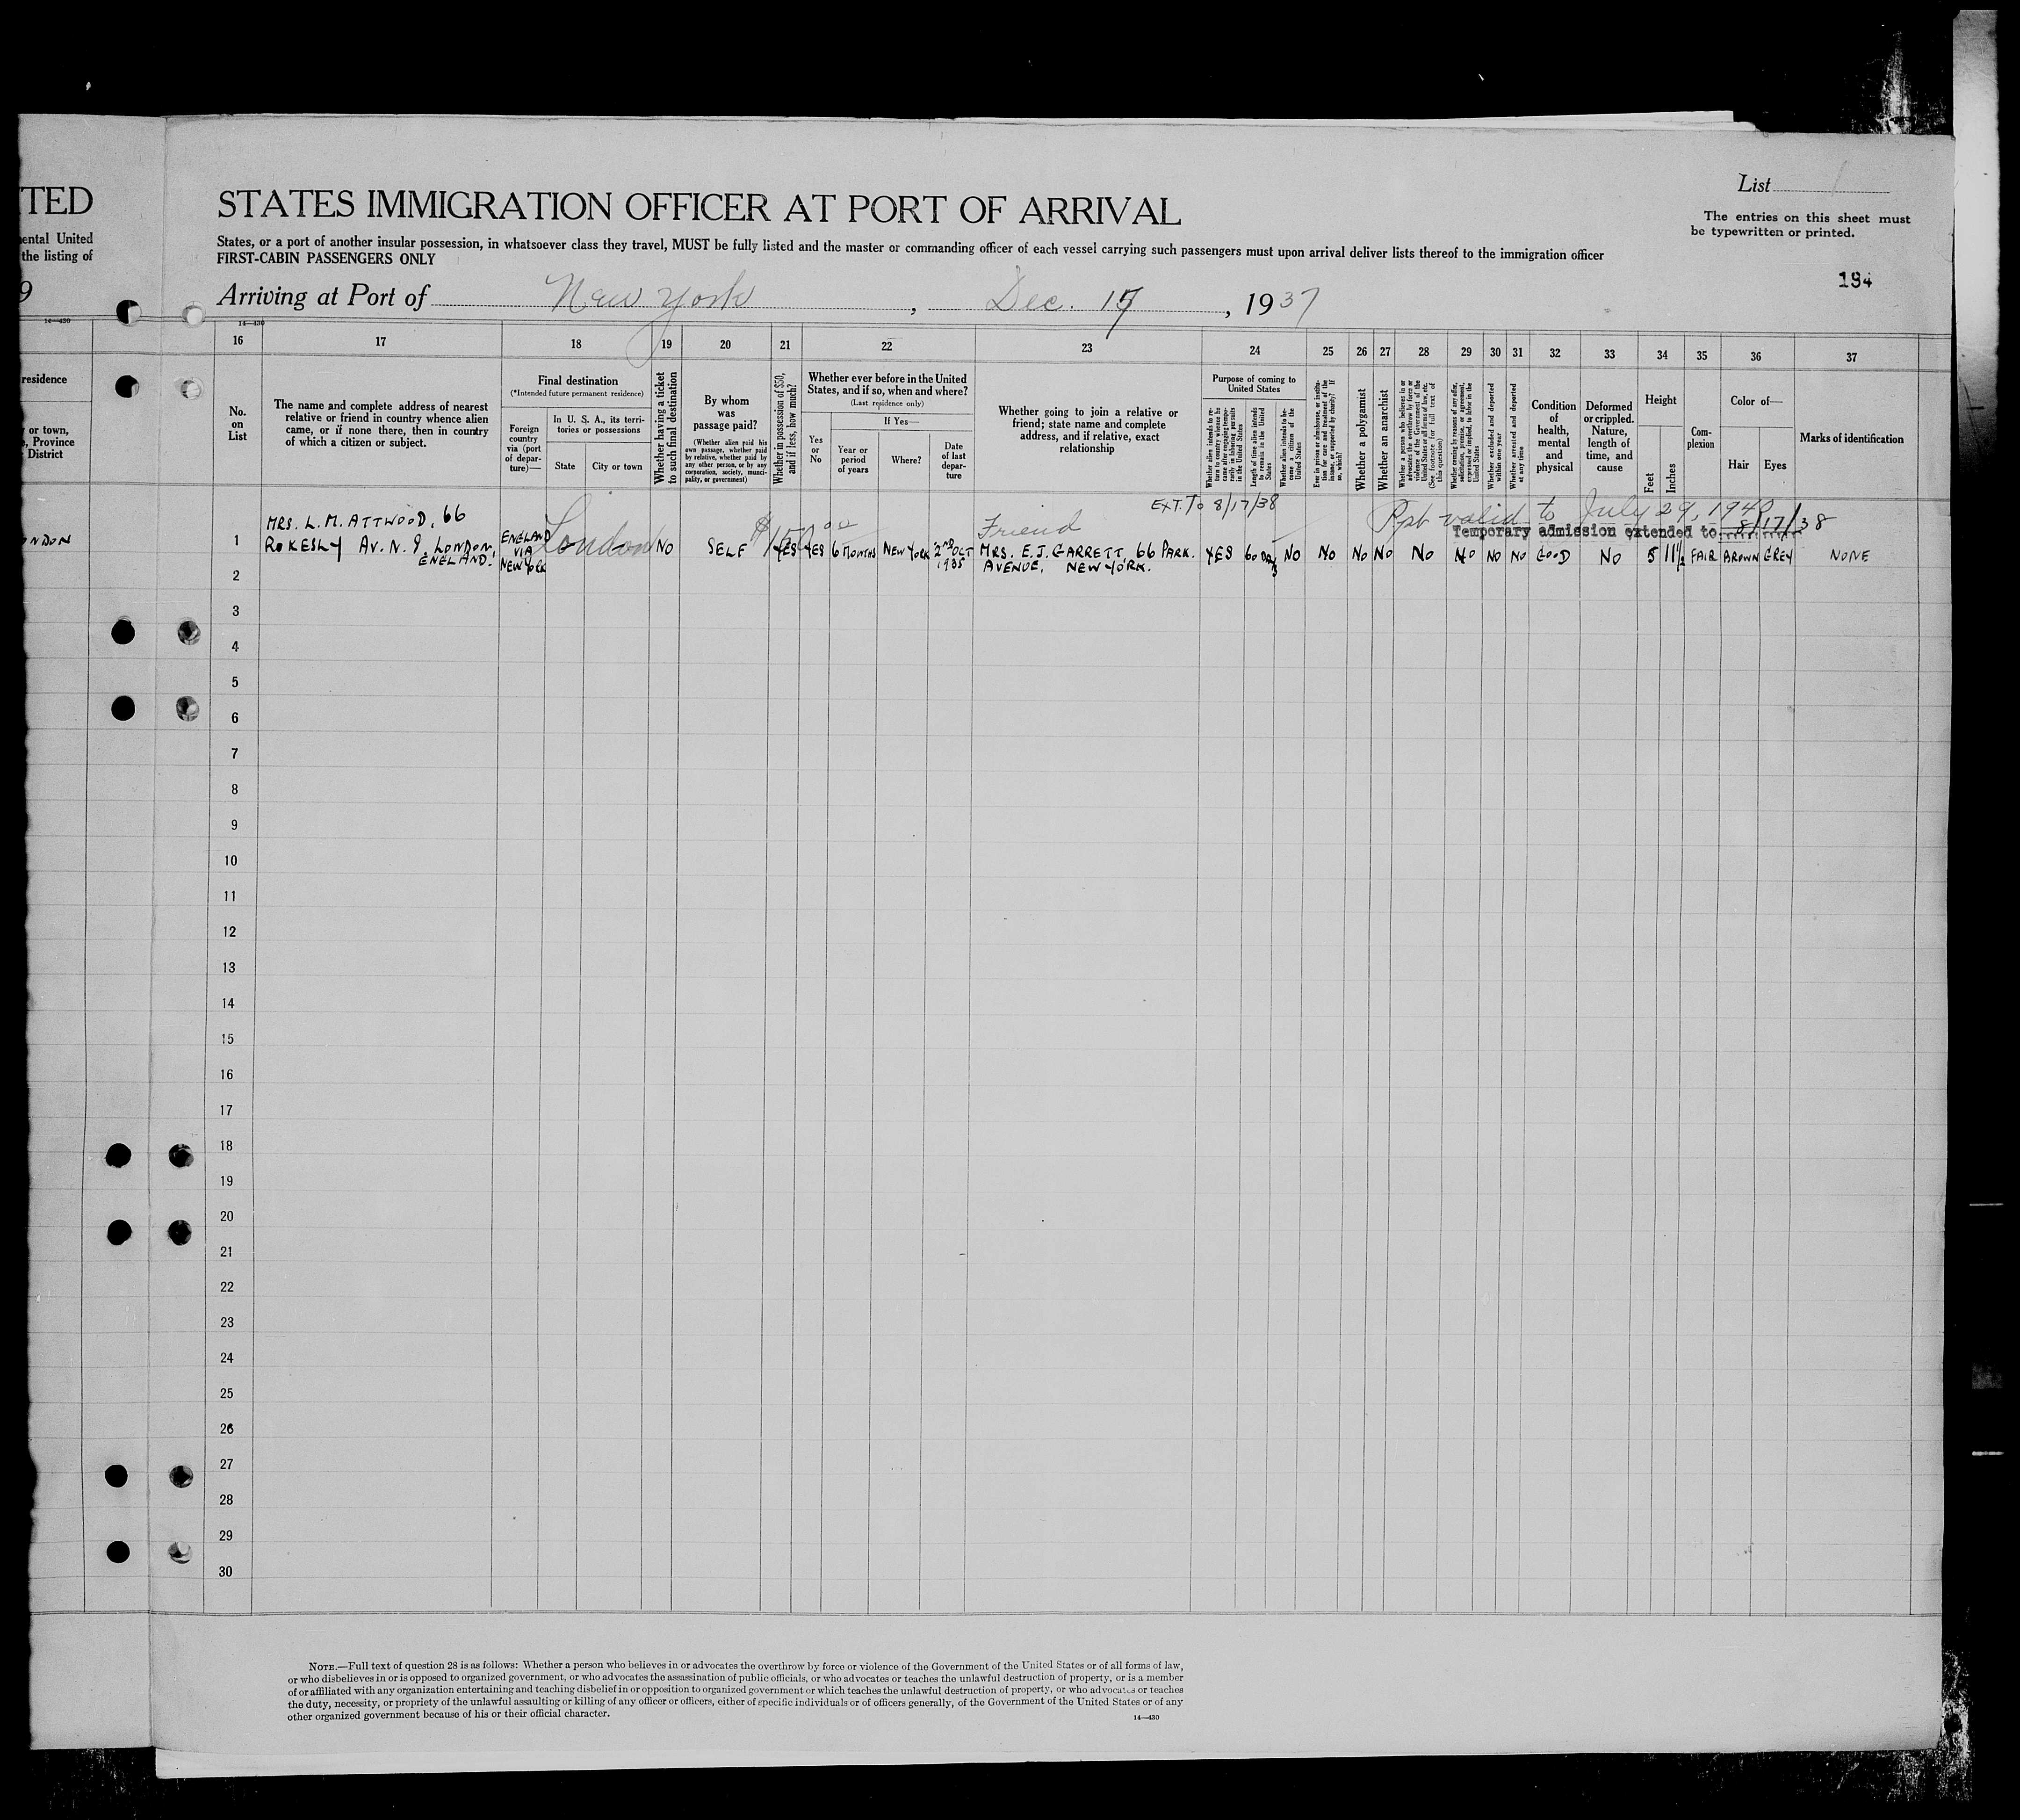 TED
ental United
the listing of
9
14—430
residence
or town,
, Province
District
ONDON
List 1
The entries on this sheet must
be typewritten or printed.
194
STATES IMMIGRATION OFFICER AT PORT OF ARRIVAL
States, or a port of another insular possession, in whatsoever class they travel, MUST be fully listed and the master or commanding officer of each vessel carrying such passengers must upon arrival deliver lists thereof to the immigration officer
FIRST-CABIN PASSENGERS ONLY
Arriving at Port of New York, Dec. 17, 1937
14—430
16 17 18 19 20 21 22 23 24 25 26 27 28 29 30 31 32 33 34 35 36 37
No.
on
List
The name and complete address of nearest
relative or friend in country whence alien
came, or if none there, then in country
of which a citizen or subject.
Final destination
(*Intended future permanent residence)
Foreign
country
via (port
of depar-
ture)—
In U. S. A., its terri-
tories or possessions
State
City or town
Whether having a ticket
to such final destination
By whom
was
passage paid?
(Whether alien paid his
own passage, whether paid
by relative, whether paid by
any other person, or by any
corporation, society, munici-
pality, or government)
Whether in possession of $50,
and if less, how much?
Whether ever before in the United
States, and if so, when and where?
(Last residence only)
If Yes—
Yes
or
No
Year or
period
of years
Where?
Date
of last
depar-
ture
Whether going to join a relative or
friend; state name and complete
address, and if relative, exact
relationship
Purpose of coming to
United States
Whether alien intends to re-
turn to country whence he
came after engaging tempo-
rarily in laboring pursuits
in the United States
Length of time alien intends
to remain in the United
States
Whether alien intends to be-
come a citizen of the
United States
Ever in prison or almshouse, or institu-
tion for care and treatment of the
insane, or supported by charity? If
so, which?
Whether a polygamist
Whether an anarchist
Whether a person who believes in or
advocates the overthrow by force or
violence of the Government of the
United States or all forms of law, etc.
(See footnote for full text of
this question)
Whether coming by reasons of any offer,
solicitation, promise, or agreement,
expressed or implied, to labor in the
United States
Whether excluded and deported
within one year
Whether arrested and deported
at any time
Condition
of
health,
mental
and
physical
Deformed
or crippled.
Nature,
length of
time, and
cause
Height
Feet
Inches
Com-
plexion
Color of—
Hair
Eyes
Marks of identification
EXT. To 8/17/38
Ppt valid to July 29, 1940
Temporary admission extended to 8/17/38
1
MRS. L. M. ATTWOOD, 66
ROKESLY AV. N. 8, LONDON,
ENGLAND.
ENGLAND
VIA
NEW YORK
London
NO
SELF
$150.00
YES
YES
6 MONTHS
NEW YORK
2ND OCT
1935
Friend
MRS. E. J. GARRETT, 66 PARK.
AVENUE, NEW YORK.
YES 60 DAYS NO NO NO NO NO NO NO NO GOOD NO 5 11½ FAIR BROWN GREY NONE
2
3
4
5
6
7
8
9
10
11
12
13
14
15
16
17
18
19
20
21
22
23
24
25
26
27
28
29
30
NOTE.—Full text of question 28 is as follows: Whether a person who believes in or advocates the overthrow by force or violence of the Government of the United States or of all forms of law,
or who disbelieves in or is opposed to organized government, or who advocates the assassination of public officials, or who advocates or teaches the unlawful destruction of property, or is a member
of or affiliated with any organization entertaining and teaching disbelief in or opposition to organized government or which teaches the unlawful destruction of property, or who advocates or teaches
the duty, necessity, or propriety of the unlawful assaulting or killing of any officer or officers, either of specific individuals or of officers generally, of the Government of the United States or of any
other organized government because of his or their official character.
14—430